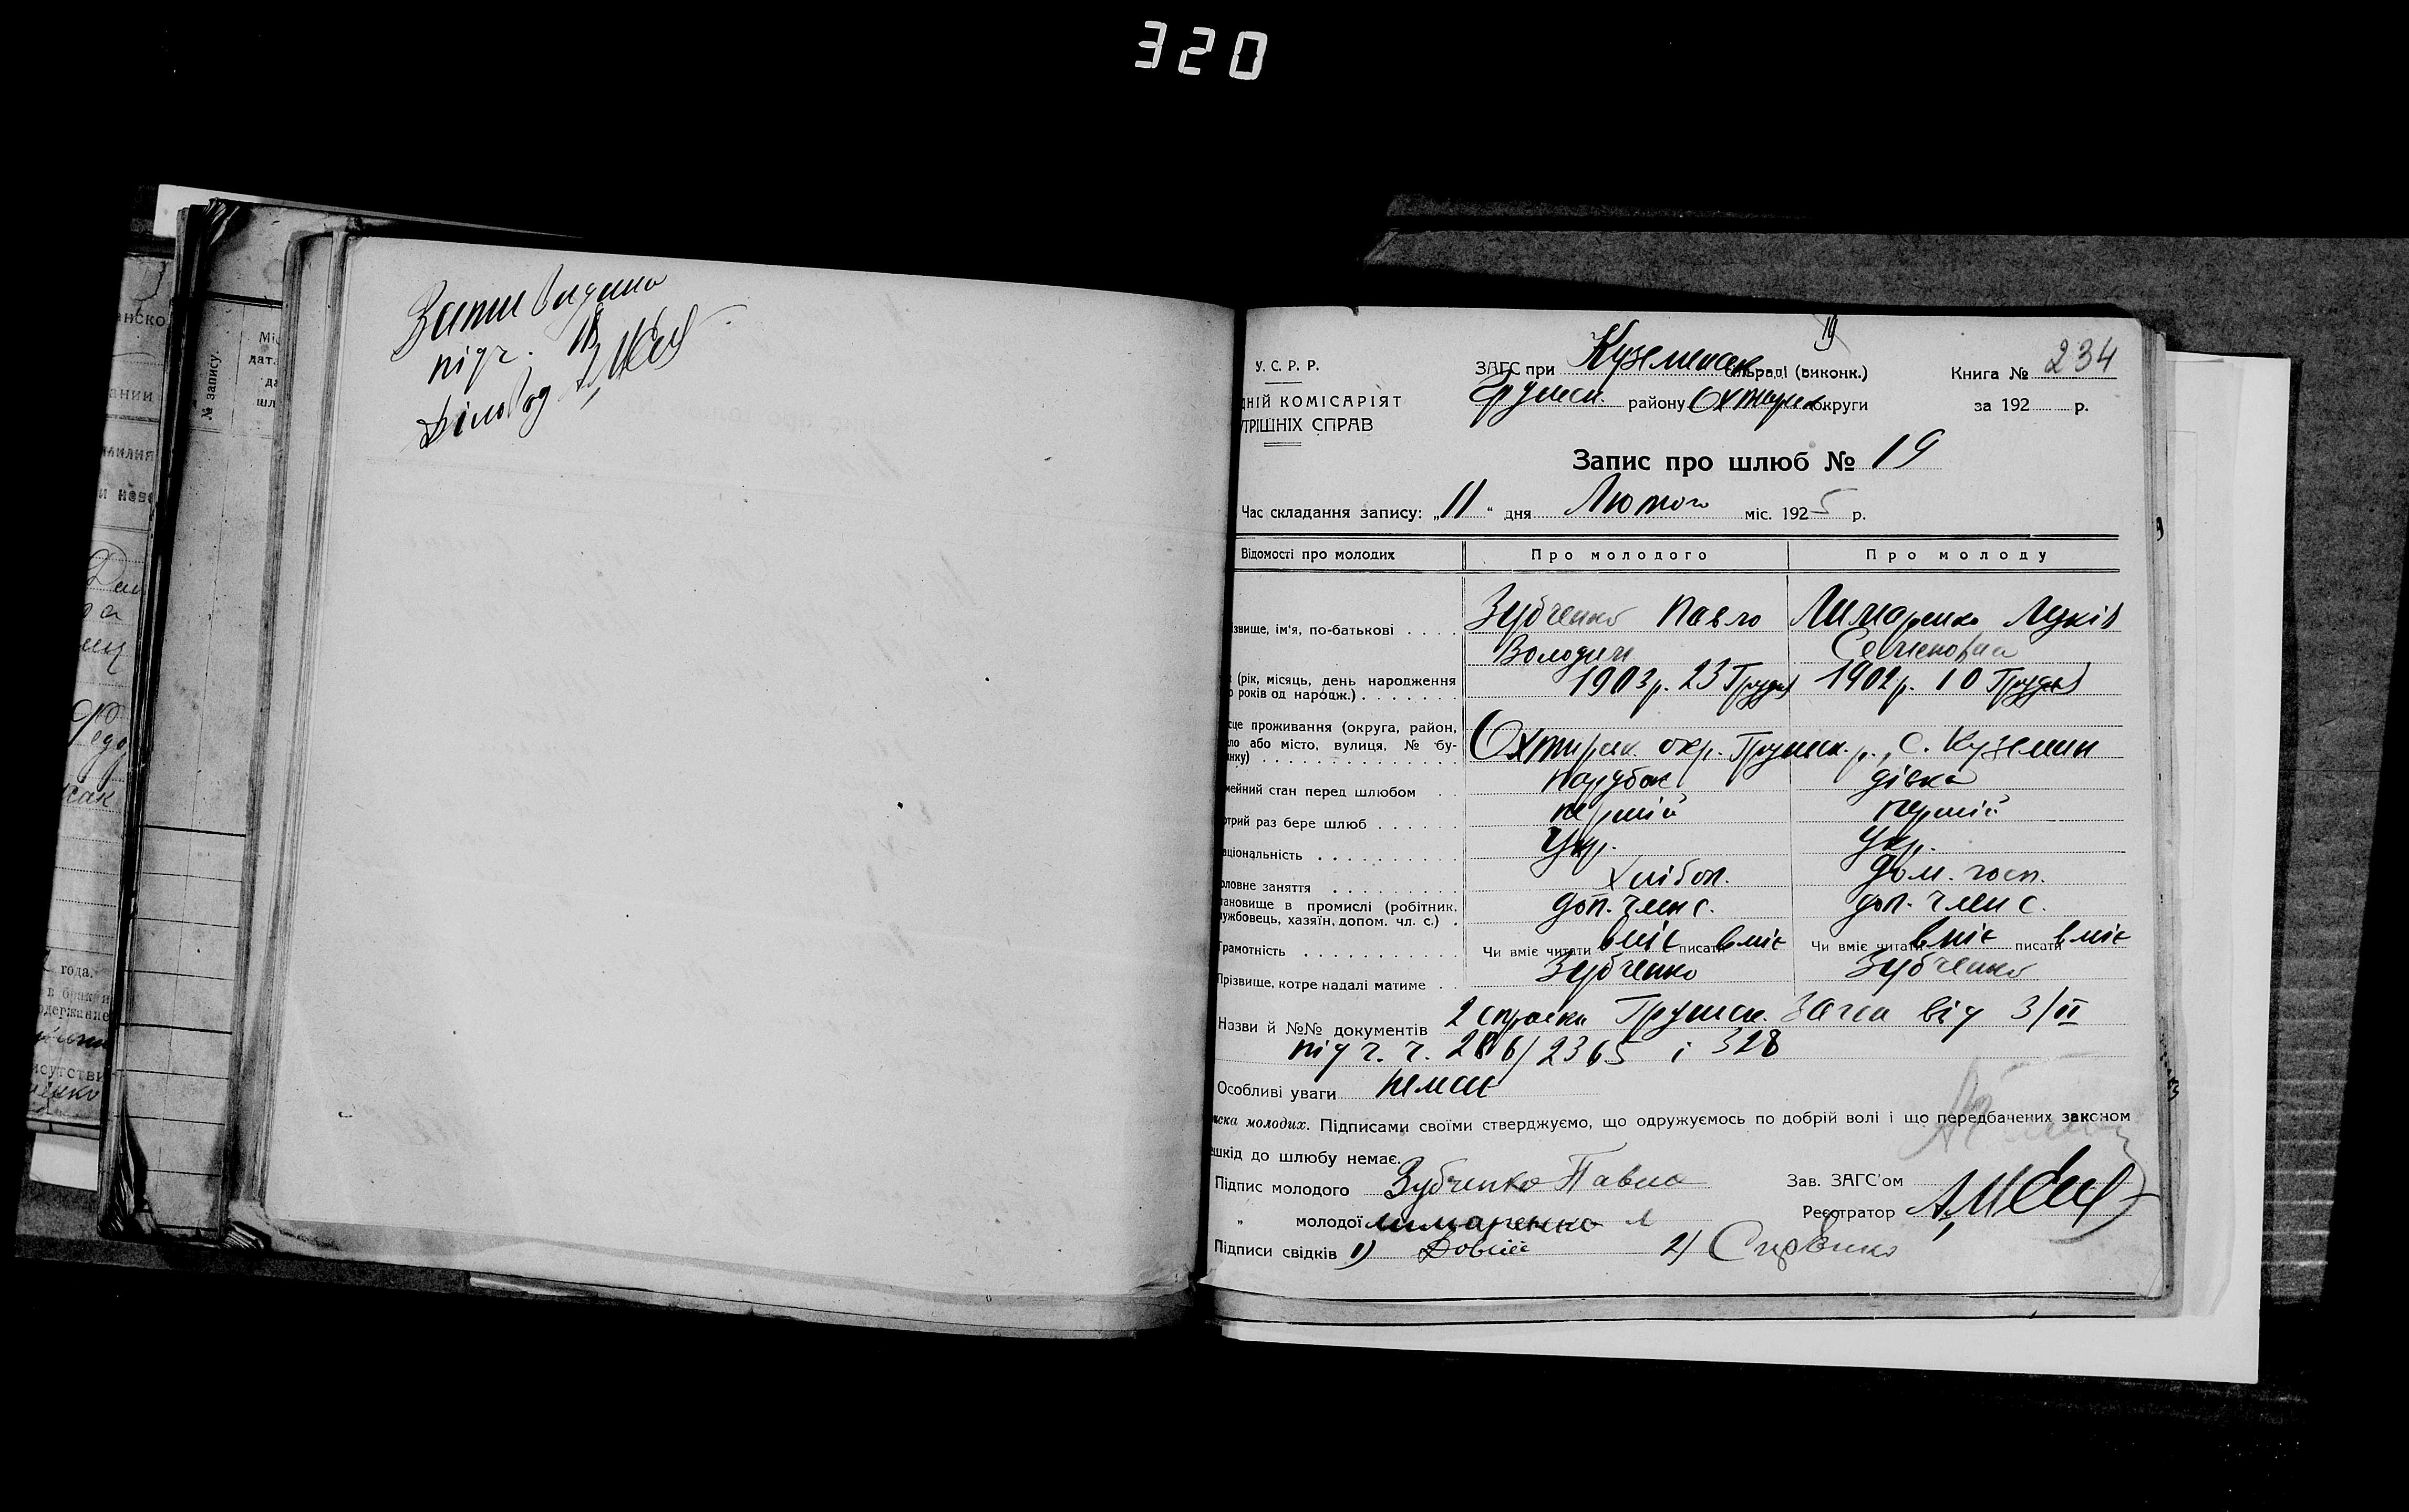 320
підч. 18
Діловод
анско
ании
№ запису.
года.
У. С. Р. Р.
ДНІЙ КОМІСАРІЯТ
УТРІШНІХ СПРАВ
19
ЗАГС при Куземинск сільраді (виконк.)
Грунськ. району Охтирськ округи
Книга № 234
за 192 р.
Запис про шлюб № 19
Час складання запису: „11“ дня Лютого міс. 1925 р.
Відомості про молодих
Про молодого
Про молоду
ізвище, ім'я, по-батькові
Зубченко Павло
Володим
Лимаренко Лукія
Семеновна
(рік, місяць, день народження
років од народж.)
1903 р. 23 Грудня
1902 р. 10 Грудня
сце проживання (округа, район,
ло або місто, вулиця, № бу-
инку)
Охтирськ. окр. Грунськ. р., С. Куземин
мейний стан перед шлюбом
парубок
дівка
отрий раз бере шлюб
перший
перший
аціональність
Укр.
Укр.
оловне заняття
хлібоп.
дом. госп.
тановище в промислі (робітник.
ужбовець, хазяїн, допом. чл. с.)
доп. член с.
доп. член с.
Грамотність
Чи вміє читати вміє писати вміє
Чи вміє читати вміє писати вміє
Прізвище, котре надалі матиме
Зубченко
Зубченко
Назви й №№ документів 2 справки Грунськ. Загса від 3/II
під ч. ч. 286/2365 і 328
Особливі уваги немає
иска молодих. Підписами своїми стверджуємо, що одружуємось по добрій волі і що передбачених законом
ешкід до шлюбу немає.
Підпис молодого Зубченко Павло
Зав. ЗАГС'ом
„ молодої Лимаренко Л
Реєстратор
Підписи свідків 1) Довгий 2)